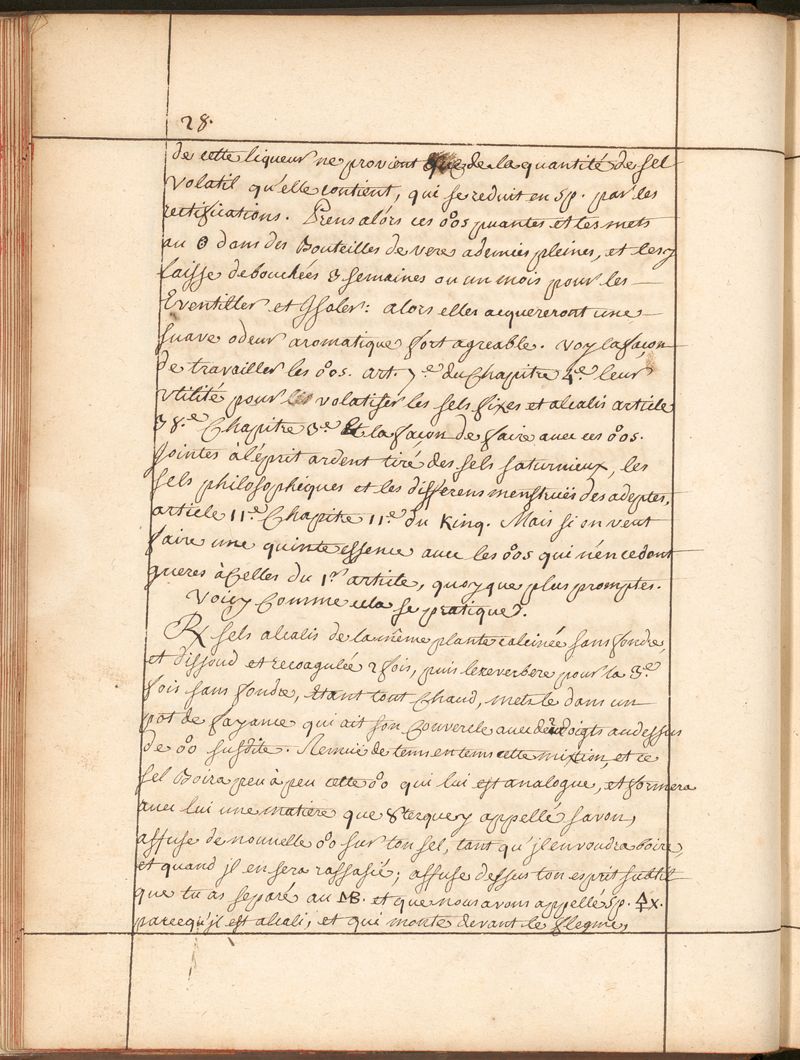 28.
de cette liqueur ne provient que de la quantité de sel
volatil qu'elle contient, qui se reduit en Sp. par les
rectifications. Prens alórs ces o°os puantes et les mets
au ☉ dans des Bouteilles de vere ademies pleines, et les y
laisse debouchées 3 semaines ou un mois pour les
Eventiller et Isoler: alors elles acquereront une
suave odeur aromatique fort agreable. voy la façon
de travailler les o°os. art. 7.e du Chapitre 4.e leur
vtilité pour volatiser les sels fixes et alcalis article
38.e Chapitre 3.e Et la façon de faire avec ces o°os.
Jointes à l'éprit ardent tiré des sels saturnieux, les
sels philosophéques et les differens menstruës des adeptes,
article 11.e Chapitre 11.e du King. Mais si on veut
faire une quinte essence avec les o°os qui n'en cedent
gueres à Celles du 1.er article, quoyque plus promptes.
Voicy Comme cela se pratique.
℞ sels alcalis de la même plante calcinée sans fondre,
et dissoud et recoagulée 2 fois, puis le reverbere pour la 3.e
fois sans fondre, étant tout Chaud, mets le dans un
pot de fayance qui ait son Couvercle avec doigts audessus
de o°o susdite. Remuë de tems en tems cette mixtion, et ce
sel Boira peu à peu cette o°o qui lui est analogue, et formera
avec lui une matiere que Sterquey appellé savon,
affuse de nouvelle o°o sur ton sel, tant qu'jl en voudra boire,
et quand jl en sera rassasié; affuse dessus ton esprit subtil
que tu as separé au MB. et que nous avons appellé Sp.
parcequ'jl est alcali, et qui monte devant le flegme,